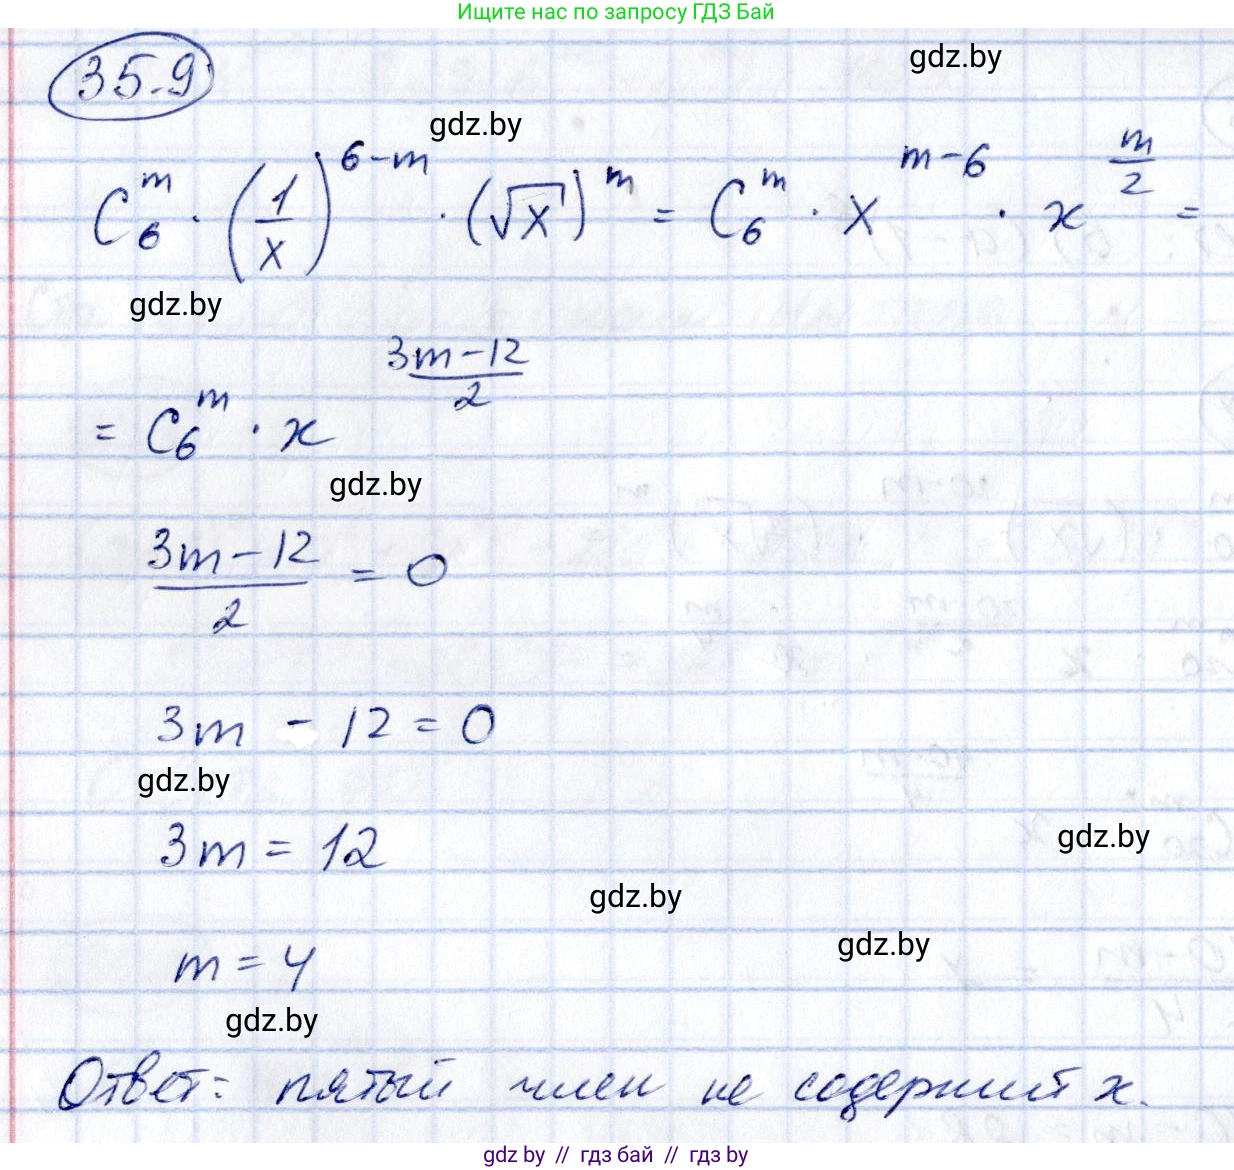 Ищите нас по запросу ГДЗ Бай
35.9
gdz.by
gdz.by
C₆^m · (1/x)^(6-m) · (√x)^m = C₆^m · x^(m-6) · x^(m/2) =
gdz.by
= C₆^m · x^((3m-12)/2)
gdz.by
(3m-12)/2 = 0
3m - 12 = 0
gdz.by
3m = 12
gdz.by
gdz.by
gdz.by
m = 4
gdz.by
Ответ: пятый член не содержит x.
gdz.by // гдз бай // gdz.by